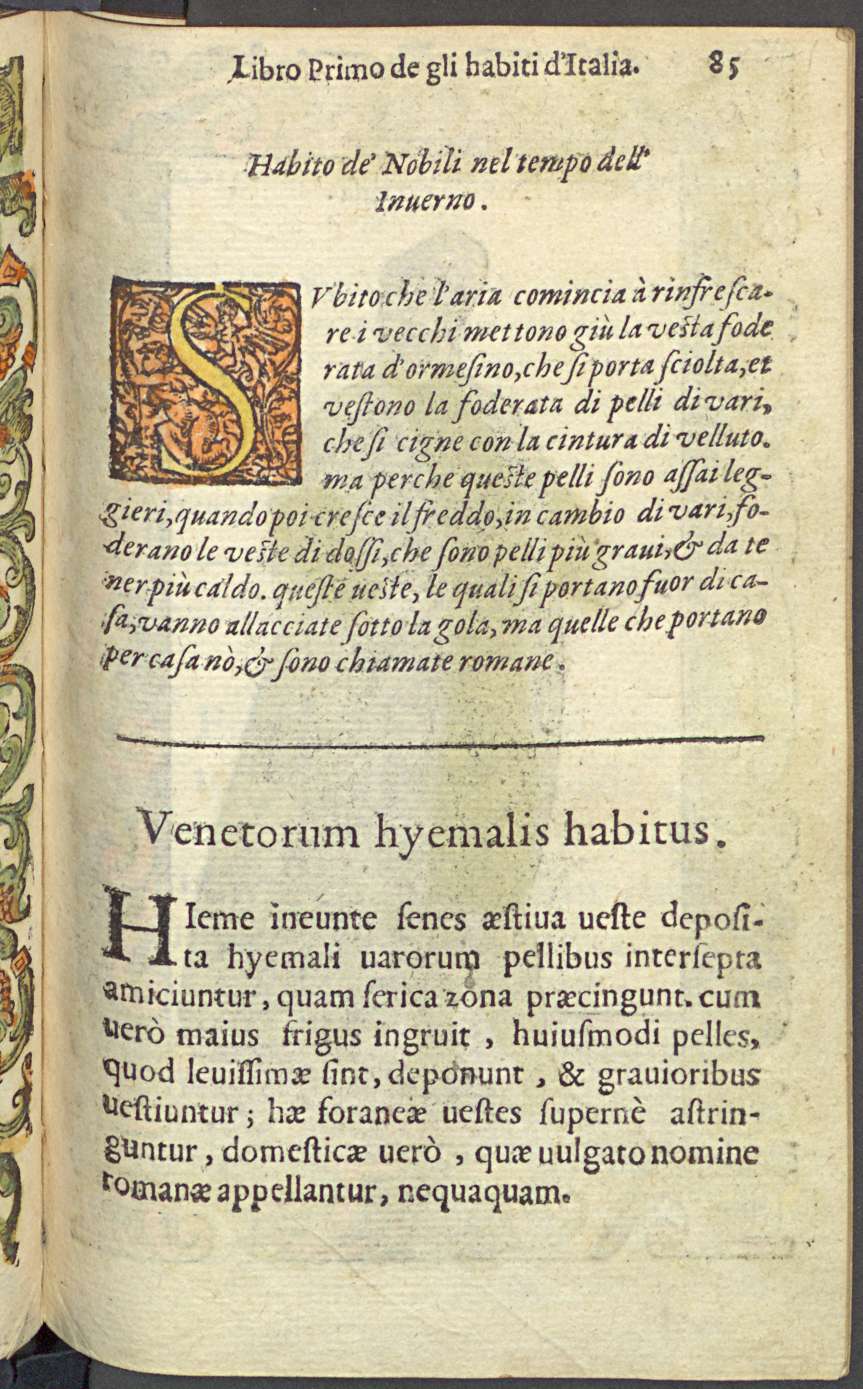 Libro Primo de gli habiti d'Italia. 85
Habito de' Nobili nel tempo dell'
Inuerno.
SVbito che l'aria comincia à rinfresca-
re i vecchi mettono giù la vesta fode
rata d'ormesino, che si porta sciolta, et
vestono la foderata di pelli di vari,
che si cigne con la cintura di velluto.
ma perche queste pelli sono assai leg-
gieri, quando poi cresce il freddo, in cambio di vari, fo-
derano le veste di dossi, che sono pelli più graui, & da te
ner più caldo. queste ueste, le quali si portano fuor di ca-
sa, vanno allacciate sotto la gola, ma quelle che portano
per casa nò, & sono chiamate romane.
Venetorum hyemalis habitus.
HIeme ineunte senes æstiua ueste deposi-
ta hyemali uarorum pellibus intersepta
amiciuntur, quam serica zona præcingunt. cum
uerò maius frigus ingruit, huiusmodi pelles,
quod leuissimæ sint, deponunt, & grauioribus
uestiuntur; hæ foraneæ uestes supernè astrin-
guntur, domesticæ uerò, quæ uulgato nomine
romanæ appellantur, nequaquam.